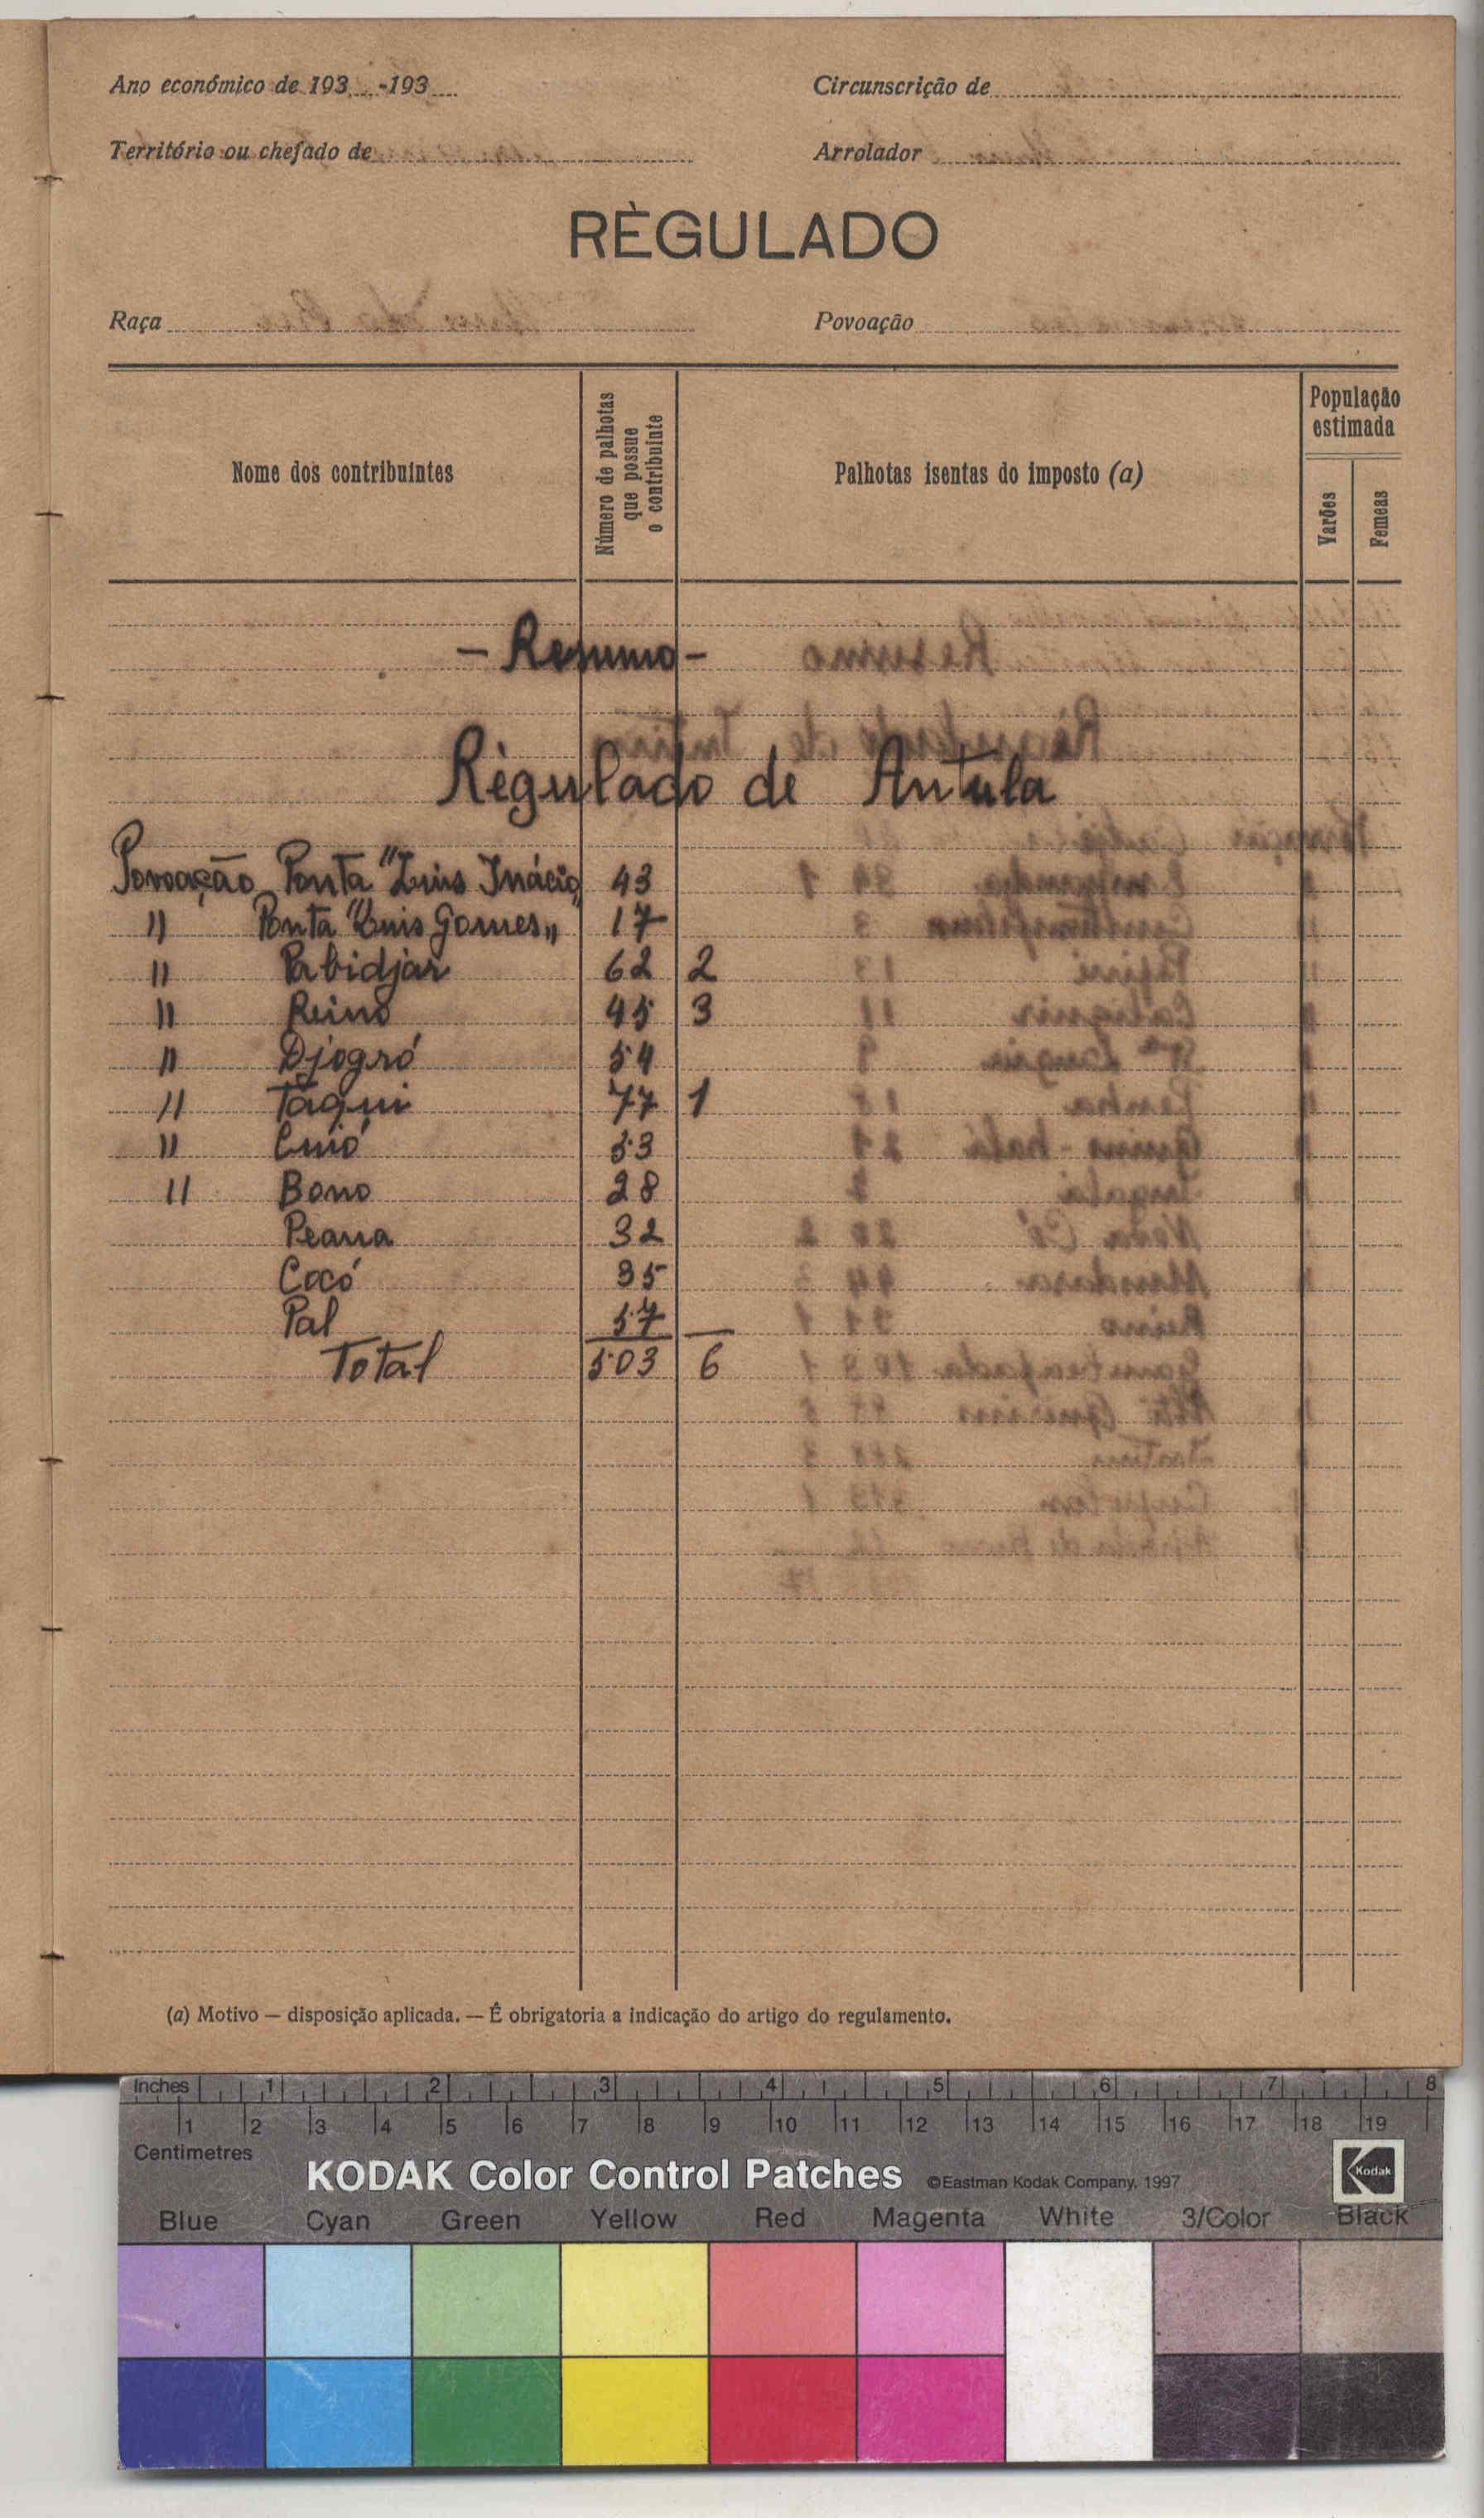 Ano económico de 193 -193
Circunscrição de
Território ou chefado de
Arrolador
RÈGULADO
Raça
Povoação
Nome dos contribuintes
Número de palhotas que possue o contribuinte
Palhotas isentas do imposto (a)
População estimada
Varões
Femeas
- Resumo -
Règulado de Antula
Povoação Ponta "Luis Inácio" 43
" Ponta "Luis Gomes" 17
" Pabidjar 62 2
" Reino 45 3
" Djogró 54
" Taqui 77 1
" Cuió 53
" Bono 28
Peana 32
Cocó 35
Pal 57
Total 503 6
(a) Motivo — disposição aplicada. — É obrigatoria a indicação do artigo do regulamento.
Inches 1 2 3 4 5 6 7 8
1 2 3 4 5 6 7 8 9 10 11 12 13 14 15 16 17 18 19
Centimetres
KODAK Color Control Patches ©Eastman Kodak Company, 1997 Kodak
Blue Cyan Green Yellow Red Magenta White 3/Color Black